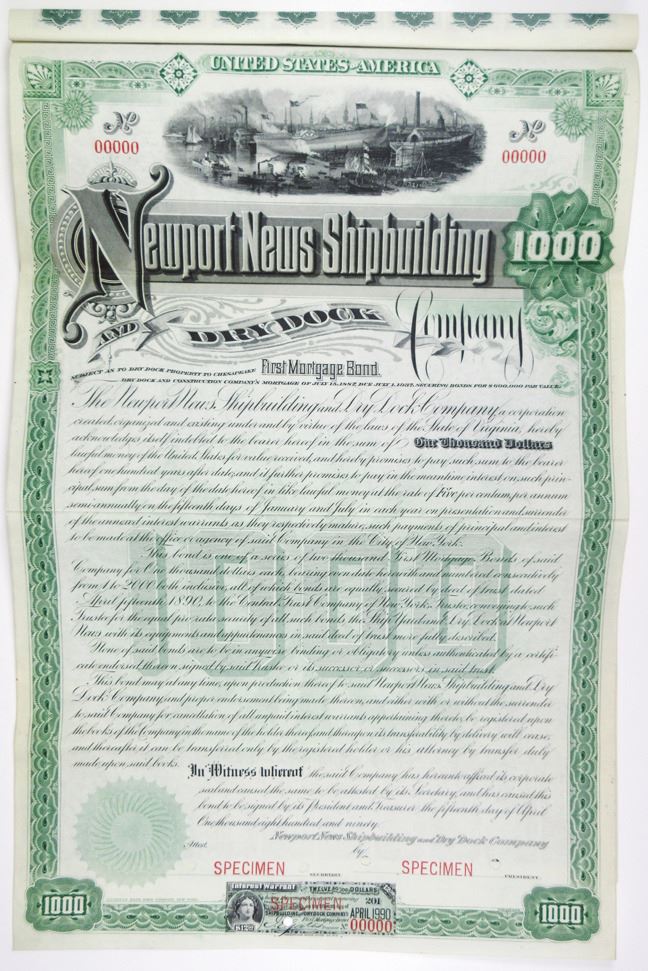 UNITED STATES OF AMERICA
No
00000
No
00000
Newport News Shipbuilding
1000
AND DRY DOCK Company
SUBJECT AS TO DRY DOCK PROPERTY TO CHESAPEAKE First Mortgage Bond.
DRY DOCK AND CONSTRUCTION COMPANY'S MORTGAGE OF JULY 15, 1887, DUE JULY 1, 1937, SECURING BONDS FOR $600,000 PAR VALUE.
The Newport News Shipbuilding and Dry Dock Company, a corporation
created, organized and existing under and by virtue of the laws of the State of Virginia, hereby
acknowledges itself indebted to the bearer hereof in the sum of One Thousand Dollars
lawful money of the United States for value received, and hereby promises to pay such sum to the bearer
hereof one hundred years after date, and it further promises to pay in the meantime interest on such prin-
cipal sum from the day of the date hereof in like lawful money at the rate of Five per centum per annum
semi-annually on the fifteenth days of January and July in each year on presentation and surrender
of the annexed interest warrants as they respectively mature, such payments of principal and interest
to be made at the office or agency of said Company in the City of New York.
This bond is one of a series of two thousand First Mortgage Bonds of said
Company for One thousand dollars each, bearing even date herewith and numbered consecutively
from 1 to 2000 both inclusive, all of which bonds are equally secured by deed of trust dated
April fifteenth 1890, to the Central Trust Company of New York, Trustee, conveying to such
Trustee for the equal pro rata security of all such bonds the Ship Yard and Dry Dock at Newport
News with its equipments and appurtenances in said deed of trust more fully described.
None of said bonds are to be in any wise binding or obligatory unless authenticated by a certifi-
cate endorsed thereon signed by said Trustee or its successor or successors in said trust.
This bond may at any time, upon production thereof to said Newport News Shipbuilding and Dry
Dock Company and proper endorsement being made thereon, and either with or without the surrender
to said Company for cancellation of all unpaid interest warrants appertaining thereto, be registered upon
the books of the Company in the name of the holder thereof and thereupon its transferability by delivery will cease,
and thereafter it can be transferred only by the registered holder or his attorney by transfer duly
made upon said books.
In Witness whereof the said Company has hereunto affixed its corporate
seal and caused the same to be attested by its Secretary, and has caused this
bond to be signed by its President and Treasurer the fifteenth day of April
One thousand eight hundred and ninety.
Newport News Shipbuilding and Dry Dock Company
Attest by
SPECIMEN SPECIMEN
SECRETARY. PRESIDENT.
AMERICAN BANK NOTE COMPANY, NEW YORK.
1000
Interest Warrant TWELVE 50/100 DOLLARS
SPECIMEN 201
SHIPBUILDING AND DRY DOCK COMPANY APRIL 1990
$12.50 No 00000
1000